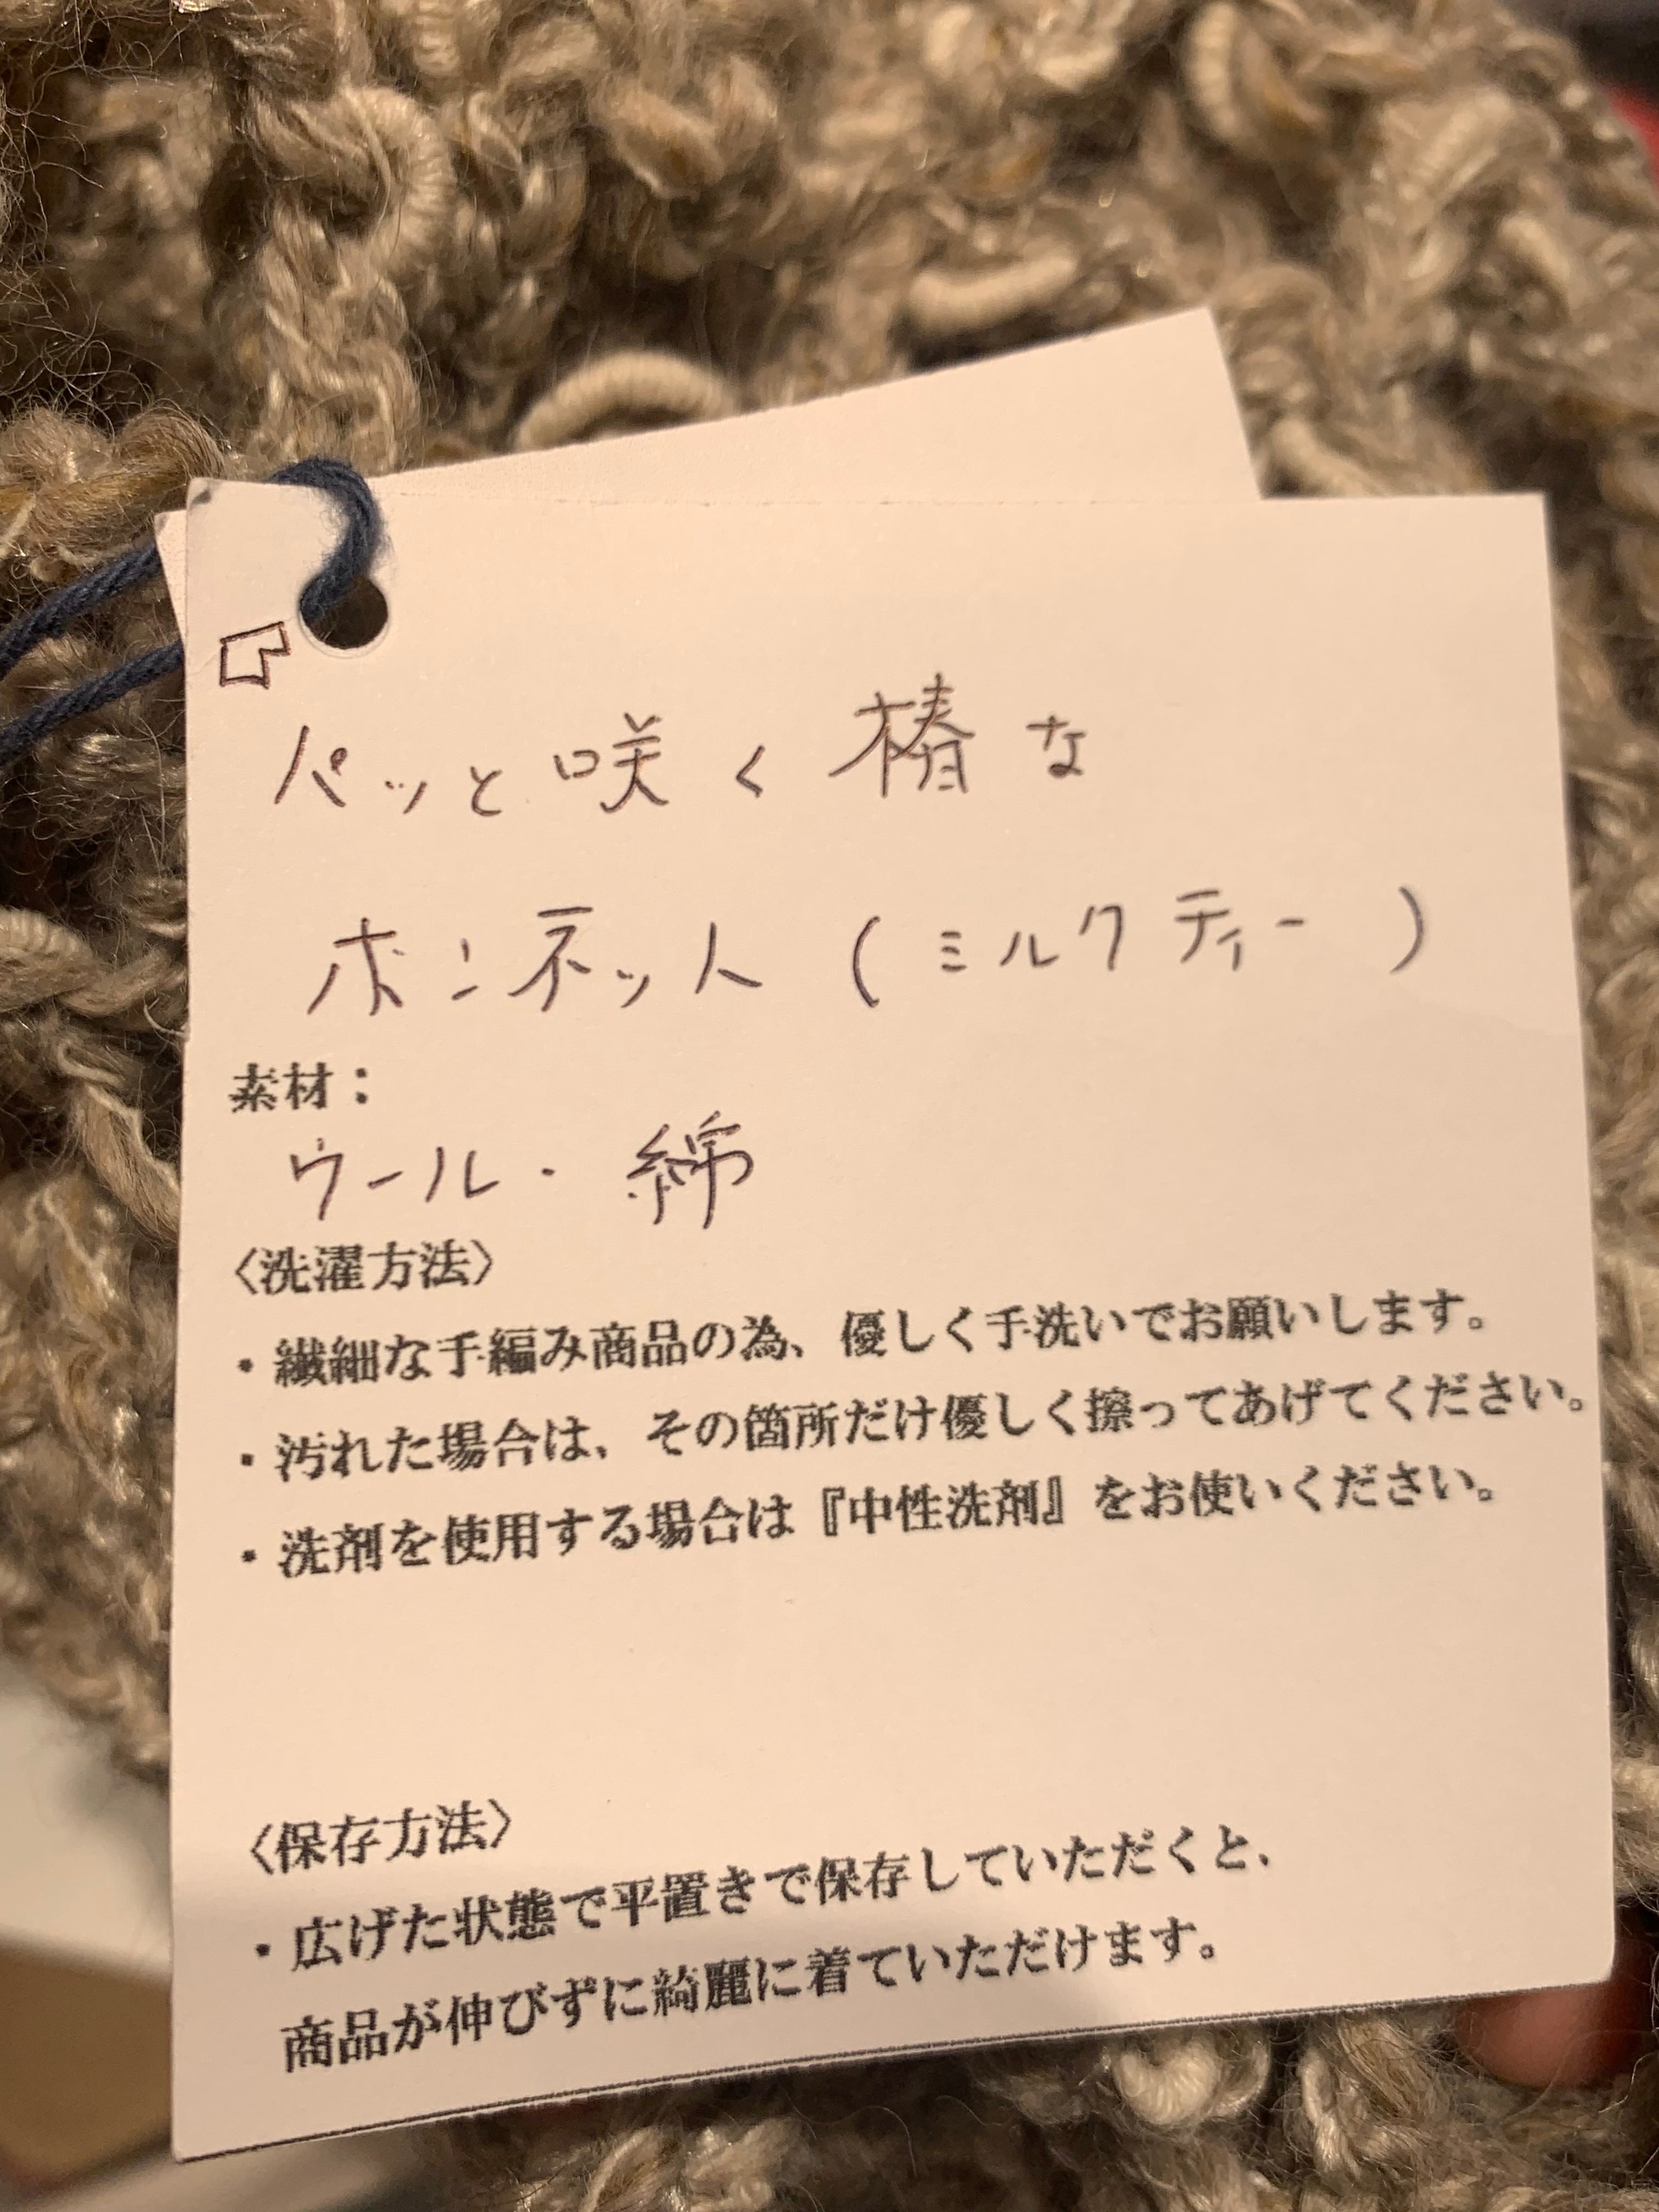 パッと咲く椿な
ボンネット（ミルクティー）
素材：
ウール・綿
〈洗濯方法〉
・繊細な手編み商品の為、優しく手洗いでお願いします。
・汚れた場合は、その箇所だけ優しく擦ってあげてください。
・洗剤を使用する場合は『中性洗剤』をお使いください。
〈保存方法〉
・広げた状態で平置きで保存していただくと、
商品が伸びずに綺麗に着ていただけます。